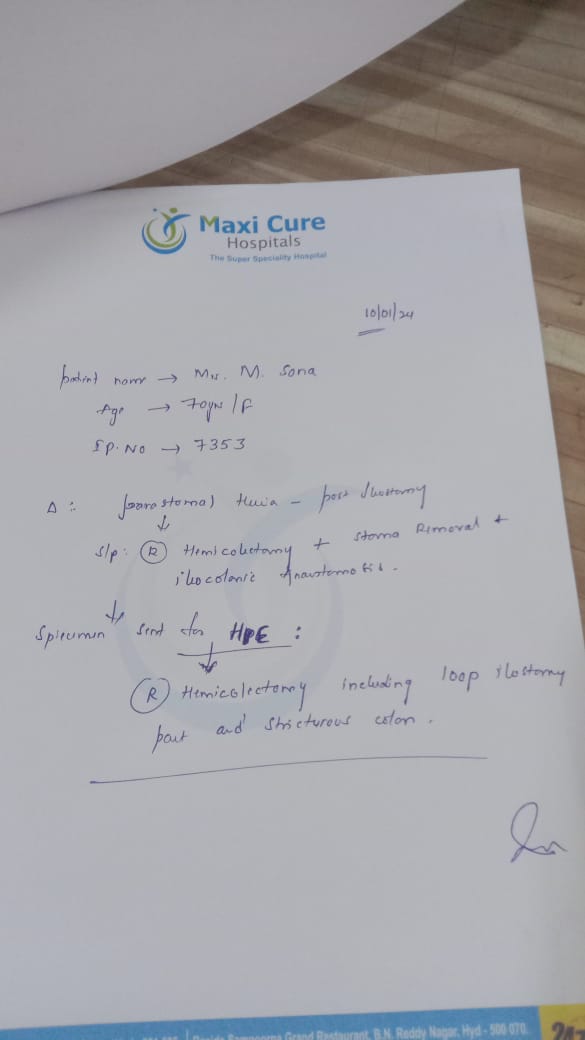 Maxi Cure
Hospitals
The Super Speciality Hospital
10/01/24
patient name → Mrs. M. Sona
Age → 70yrs / F
I P. No → 7353
Δ : parastomal Hernia - post Ileostomy
↓
S/p : (R) Hemicolectomy + stoma Removal +
ileocolonic Anaustomosis.
↓
Speicumen sent for HPE :
↓
(R) Hemicolectomy including loop ilostomy
part and stricturous colon.
Grand Restaurant, B.N. Reddy Nagar, Hyd - 500 070.